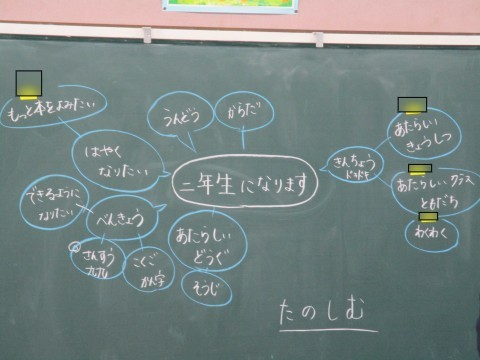 もっと本をよみたい
うんどう
からだ
はやく
なりたい
二年生になります
きんちょう
ドキドキ
あたらしい
きょうしつ
あたらしいクラス
ともだち
わくわく
できるように
なりたい
べんきょう
さんすう
九九
こくご
かん字
あたらしい
どうぐ
そうじ
たのしむ